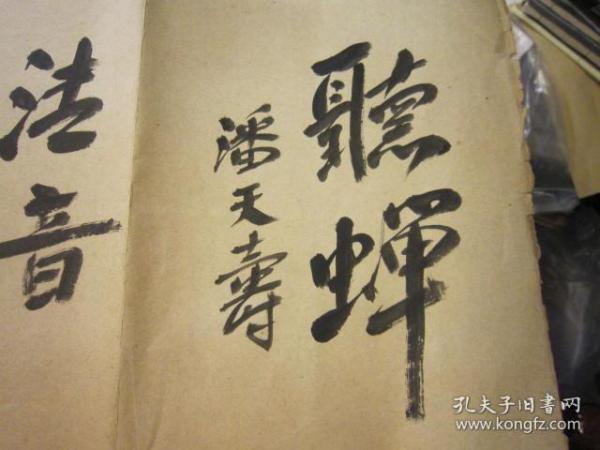 聽蟬
潘天壽
清音
孔夫子旧书网
www.kongfz.com